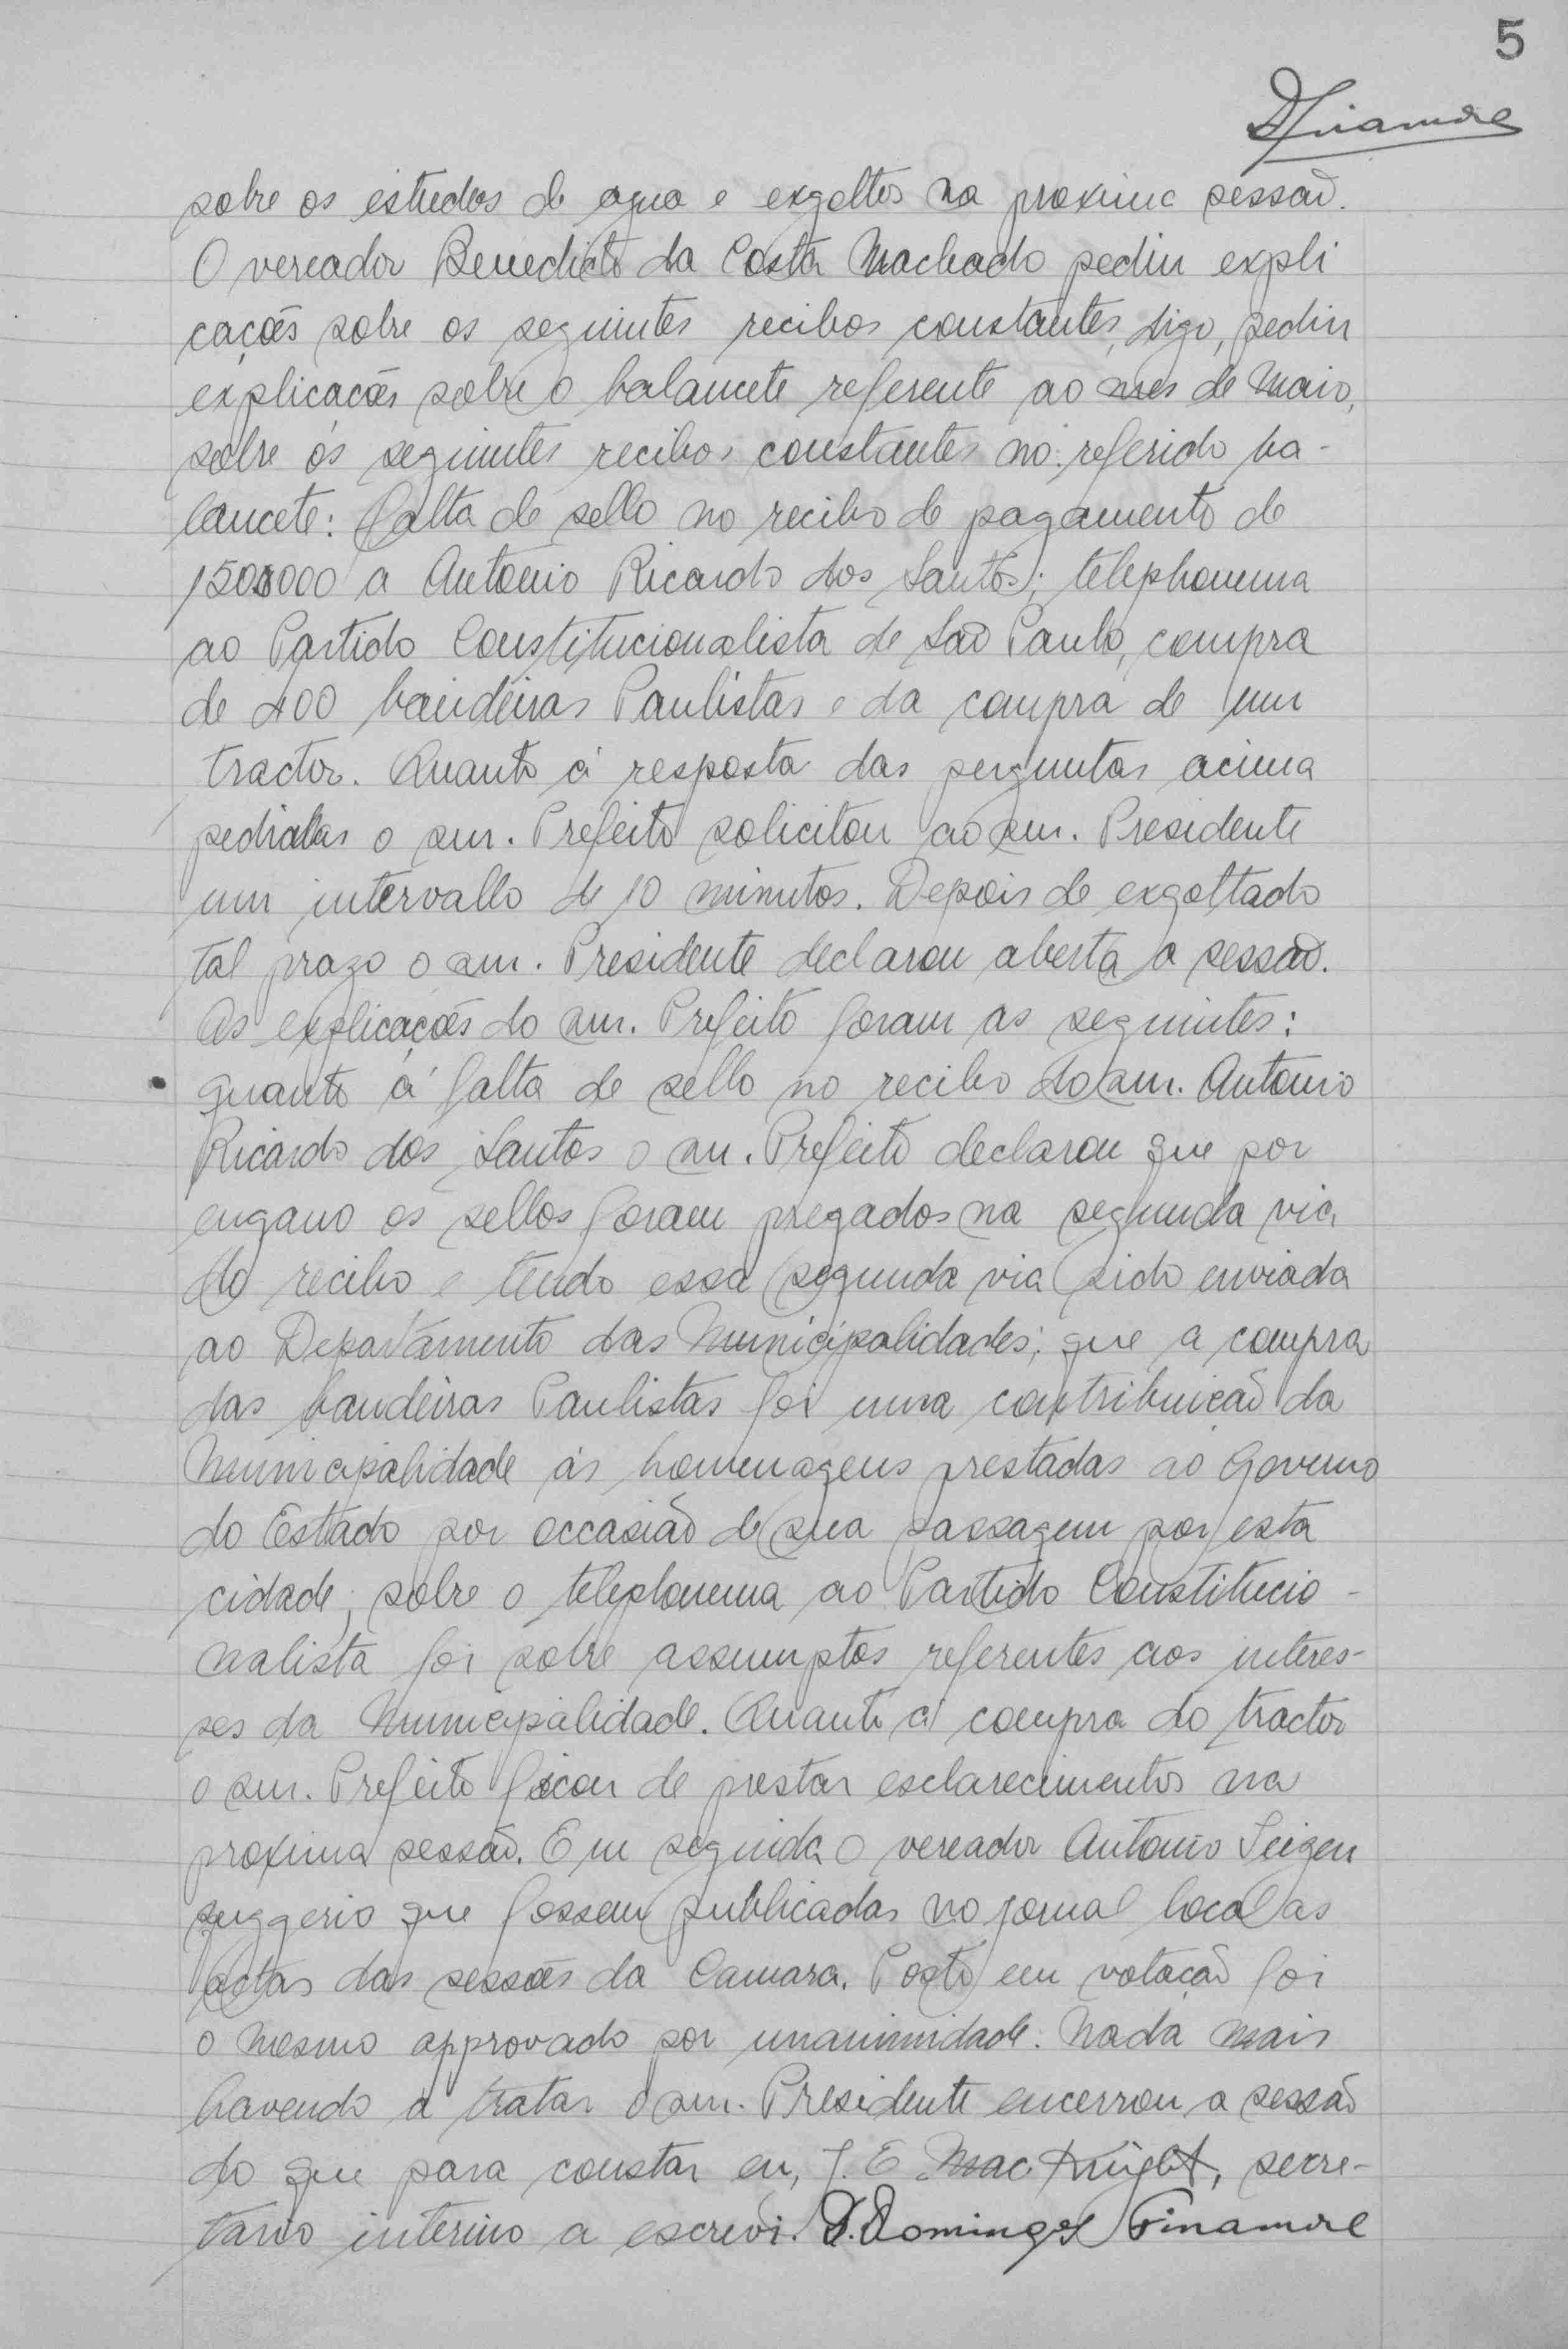 5
DFinamore
sobre os estudos de agua e exgottos na proxima sessão.
O vereador Benedicto da Costa Machado pediu expli
cações sobre os seguintes recibos constantes, digo, pediu
explicacões sobre o balancete referente ao mes de Maio,
sobre os seguintes recibos constantes no referido ba-
lancete: falta de sello no recibo de pagamento de
150$000 a Antonio Ricardo dos Santos; telephonema
ao Partido Constitucionalista de São Paulo, compra
de 400 bandeiras Paulistas e da compra de um
tractor. Quanto á resposta das perguntas acima
pedidas o snr. Prefeito solicitou ao snr. Presidente
um intervallo de 10 minutos. Depois de exgottado
tal prazo o snr. Presidente declarou aberta a sessão.
As explicações do snr. Prefeito foram as seguintes:
quanto á falta de sello no recibo do snr. Antonio
Ricardo dos Santos o snr. Prefeito declarou que por
engano os sellos foram pregados na segunda via
do recibo e tendo essa segunda via sido enviada
ao Departamento das Municipalidades; que a compra
das bandeiras Paulistas foi uma contribuição da
Municipalidade ás homenagens prestadas ao Governo
do Estado por occasião de sua passagem por esta
cidade; sobre o telephonema ao Partido Constitucio-
nalista foi sobre assumptos referentes aos interes-
ses da Municipalidade. Quanto á compra do tractor
o snr. Prefeito ficou de prestar esclarecimentos na
proxima sessão. Em seguida o vereador Antonio
suggerio que fossem publicadas no jornal local as
actas das sessões da Camara. Posto em votação foi
o mesmo approvado por unanimidade. Nada mais
havendo a tratar o snr. Presidente encerrou a sessão
do que para constar eu, J. E. Mac Knight, secre-
tario interino a escrevi. D. Domingos Finamore